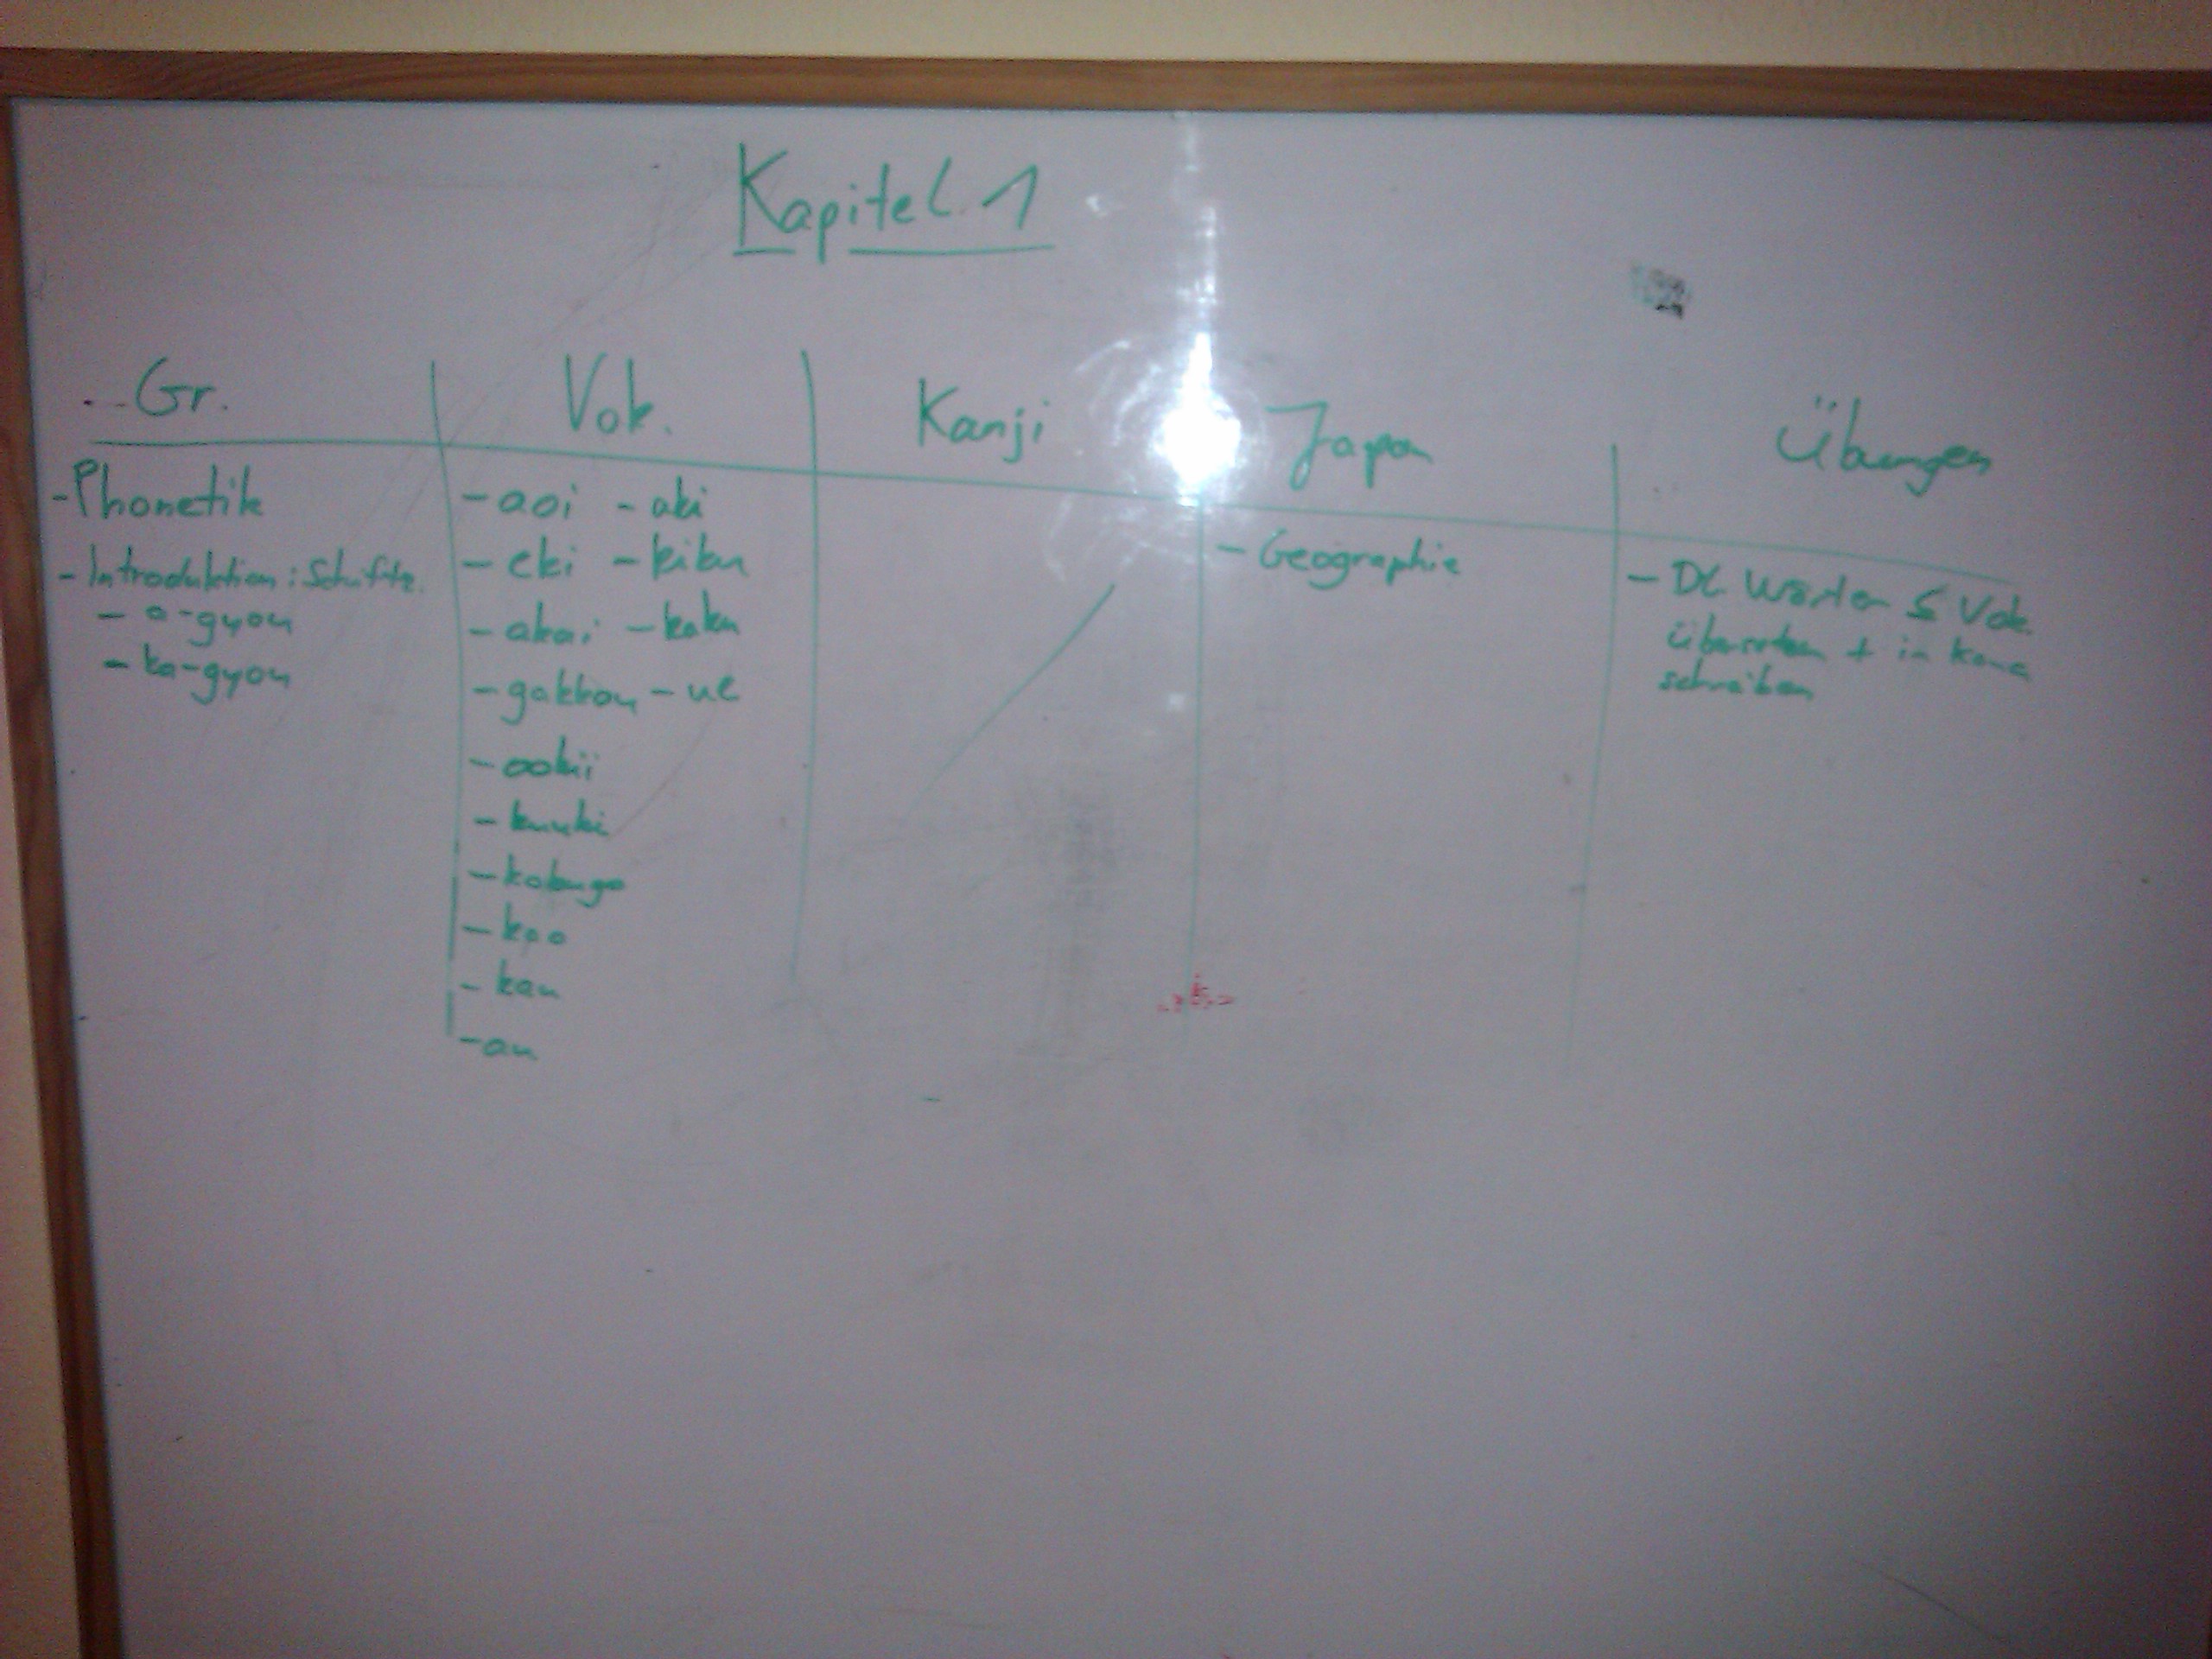 Kapitel 1
Gr.
Vok.
Kanji
Japan
Übungen
- Phonetik
- Introduktion: Schriftz.
- a-gyou
- ka-gyou
- aoi - aki
- eki - kiku
- akai - kaku
- gakkou - ue
- ookii
- kuuki
- kokugo
- kao
- kau
- au
- Geographie
- Dt. Wörter ≤ Vok.
übersetzen + in Kana
schreiben